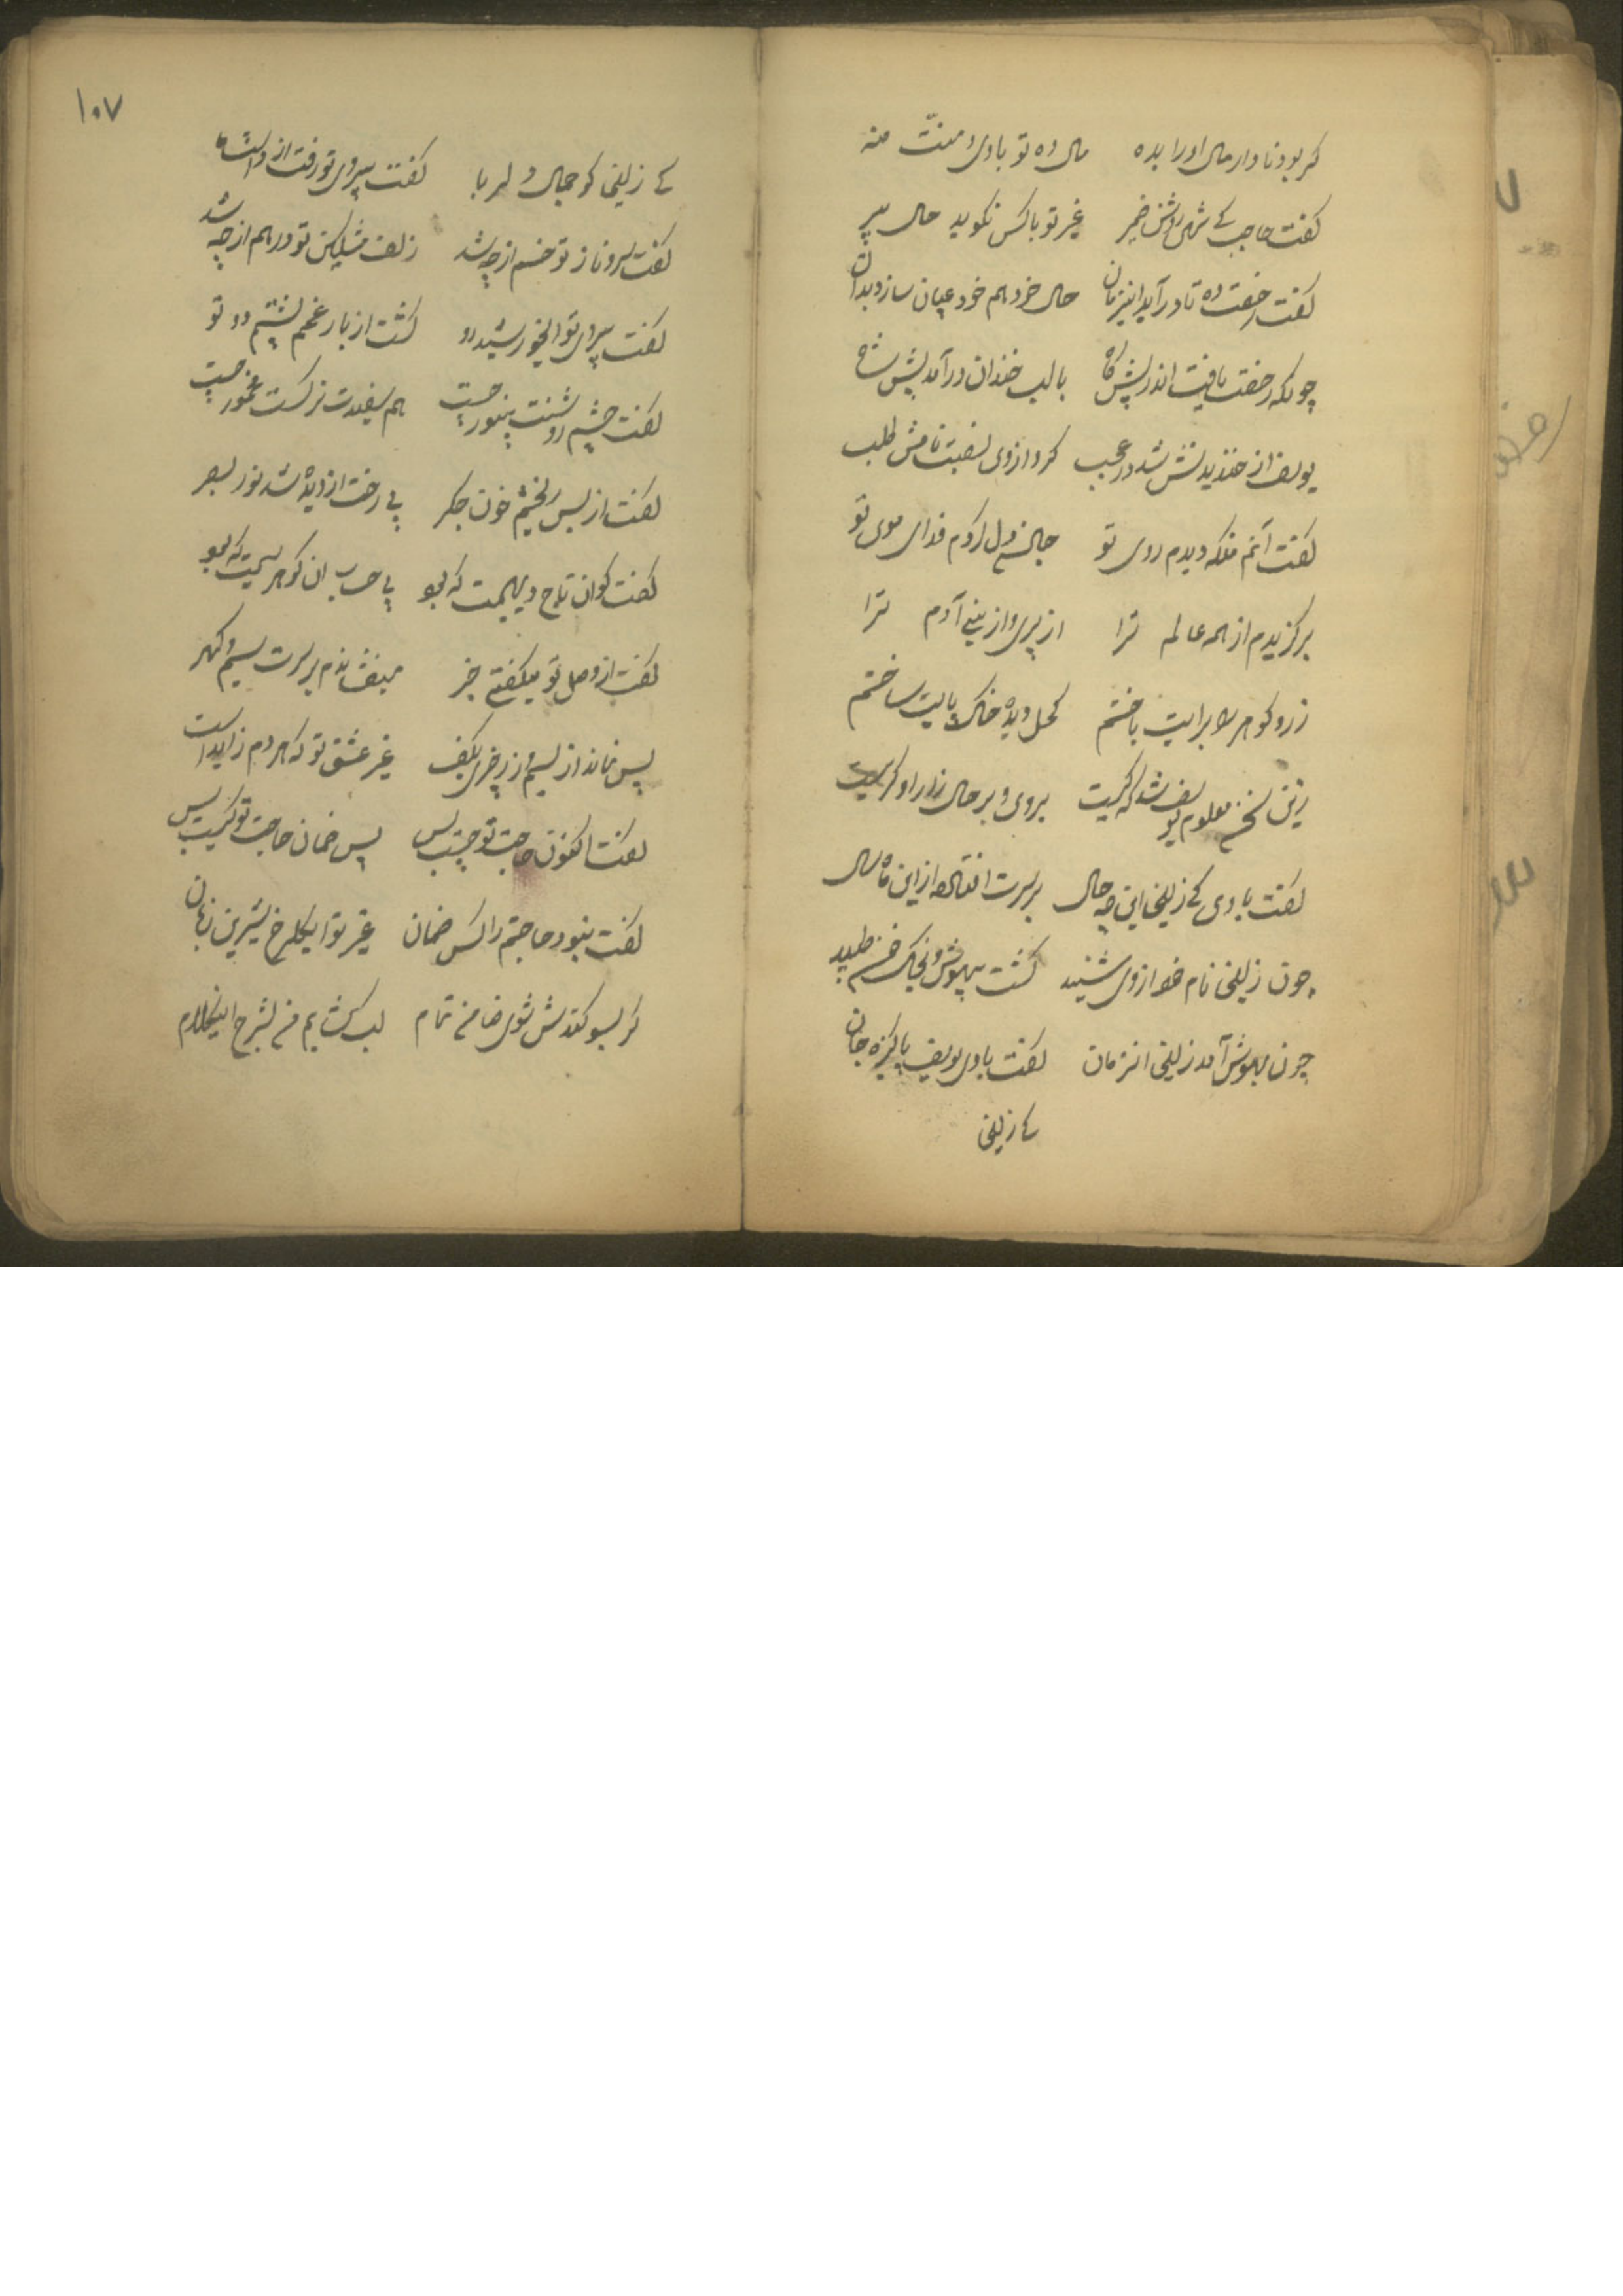 کر بود نادار مال او را بده مال ده تو با وی و منّت منه
کفت حاجب کے شهی روشن ضمیر غیر تو با کس نکوید حال پیر
کفت رخصت ده تا در آید اینزمان حال خود هم خود عیان سازد بدان
چونکه رخصت یافت اندر پیش کاه با لب خندان در آمد پیش شاه
یوسف از خندیدنش شد در عجب کرد از وی نام طلب
کفت آنم منکه دیدم روی تو جان و دل کردم فدای موی تو
برکزیدم از همه عالم ترا از پری و از بنی آدم ترا
زر و کوهر برایت باختم کحل دیده خاک پایت ساختم
زین سخن معلوم یوسف شد که کیست بروی و بر حال زار او کریست
کفت با وی کے زلیخا این چه حال بر سرت از این ماه و سال
چون زلیخا نام خود از وی شنید کشت بیهوش و بخاک طپید
چون بهوش آمد زلیخا انزمان کفت با وی یوسف پاکیزه جان
کے زلیخا
۱۰۷
کے زلیخا کو جمال دلربا کفت بیروی تو رفت از
کفت سرو ناز تو خم از چه شد زلف مشکین تو درهم از چه شد
کفت بیروی تو ایخورشید رو کشت از بار غمم پشتم دو تو
کفت چشم روشنت بینور چیست هم سفیدت نرکست مخمور چیست
کفت از بس ریختم خون جکر بی رخت از دیده شد نور بصر
کفت کو ان تاج و دیهیمت که بو بی حساب ان کوهر و سیمت که بو
کفت از وصل تو میکفتے خبر میفشاندم بر سرت سیم و کهر
پس نماند از سیم و زر بکف غیر عشق تو که هر دم زاید است
کفت اکنون حاجت تو چیست پس ضمان حاجت تو کیست پس
کفت نبود حاجتم را کس ضمان غیر تو ایکلرخ شیرین زبان
کر بسوکندش شوی ضامن تمام لب کشایم من بشرح اینکلام